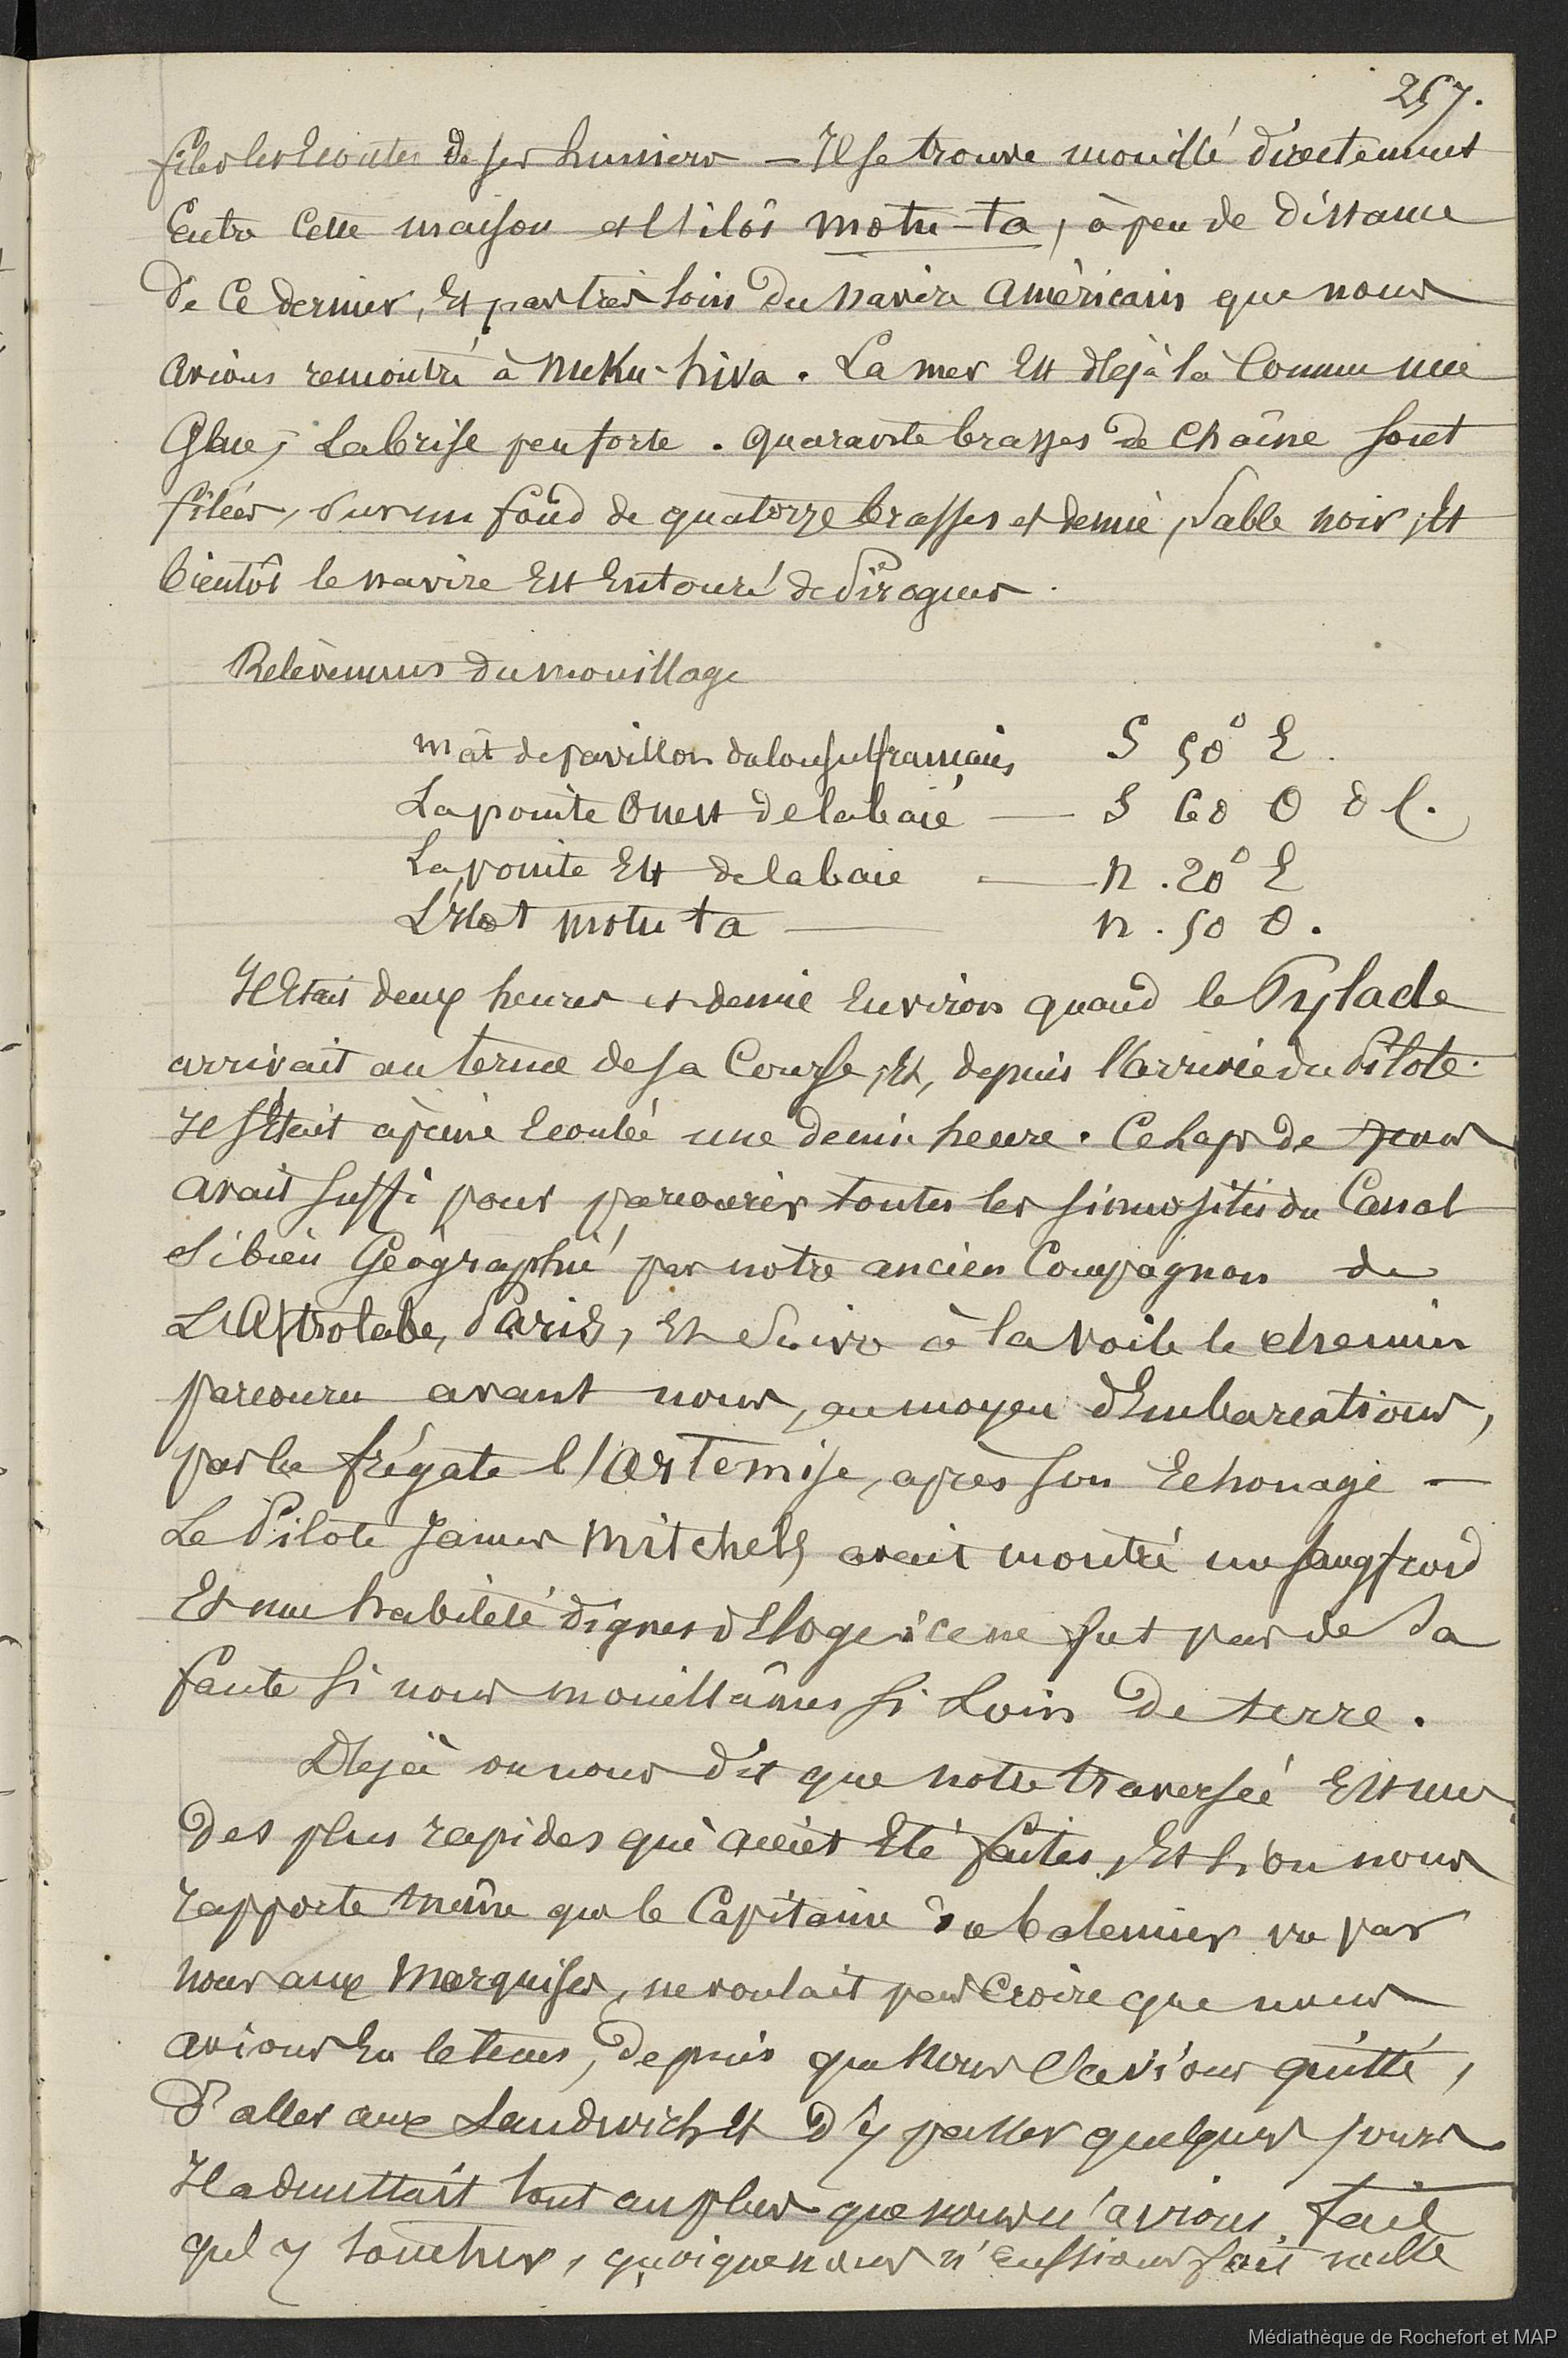 257.
filer les Ecoutes de ses huniers — Il se trouve mouillé directement
Entre Cette maison et l'ilôt motu-ta, à peu de distance
de ce dernier, Et pas très loin du navire américain que nous
avions rencontré à nuku-hiva. La mer Est dejà là Comme une
Glace; La brise peu forte. quarante brasses de chaîne sont
filées, sur un fond de quatorze brasses et demie, sable noir, Et
bientôt le navire Est Entouré de Pirogues.
Relèvemens du mouillage
mât de pavillon du Consul français S 50° E.
La pointe Ouest de la baie — S 60 O
La pointe Est de la baie — N. 20° E
L'Ilot motu ta — N. 50 O.
Il Etait deux heures et demie Environ quand le Pylade
arrivait au terme de sa Course, Et, depuis l'arrivée du Pilote
Il s'Etait à peine Ecoulé une demie heure. Ce Laps de
avait suffi pour parcourir toutes les sinuosités du Canal
si bien Géographié par notre ancien Compagnon de
L'Astrolabe, Paris, Et suivre à la voile le chemin
parcouru avant nous, au moyen d'Embarcations,
par la frégate l'artemise, après son Echouage —
Le Pilote James Mitchels avait montré un sangfroid
Et une habileté dignes d'Eloges; ce ne fut pas de sa
faute si nous mouillâmes si Loin de terre.
Dejà on nous dit que notre traversée Est une
des plus rapides qui aient Eté faites, Et l'on nous
rapporte même que le Capitaine du baleinier vu par
nous aux Marquises, ne voulait pas Croire que nous
avions Eu le tems, depuis que nous l'avions quitté,
d'aller aux Sandwich Et d'y passer quelques jours
Il admettait tout au plus que nous n'avions fait
qu'y toucher, quoique nous n'eussions fait nulle
Médiathèque de Rochefort et MAP